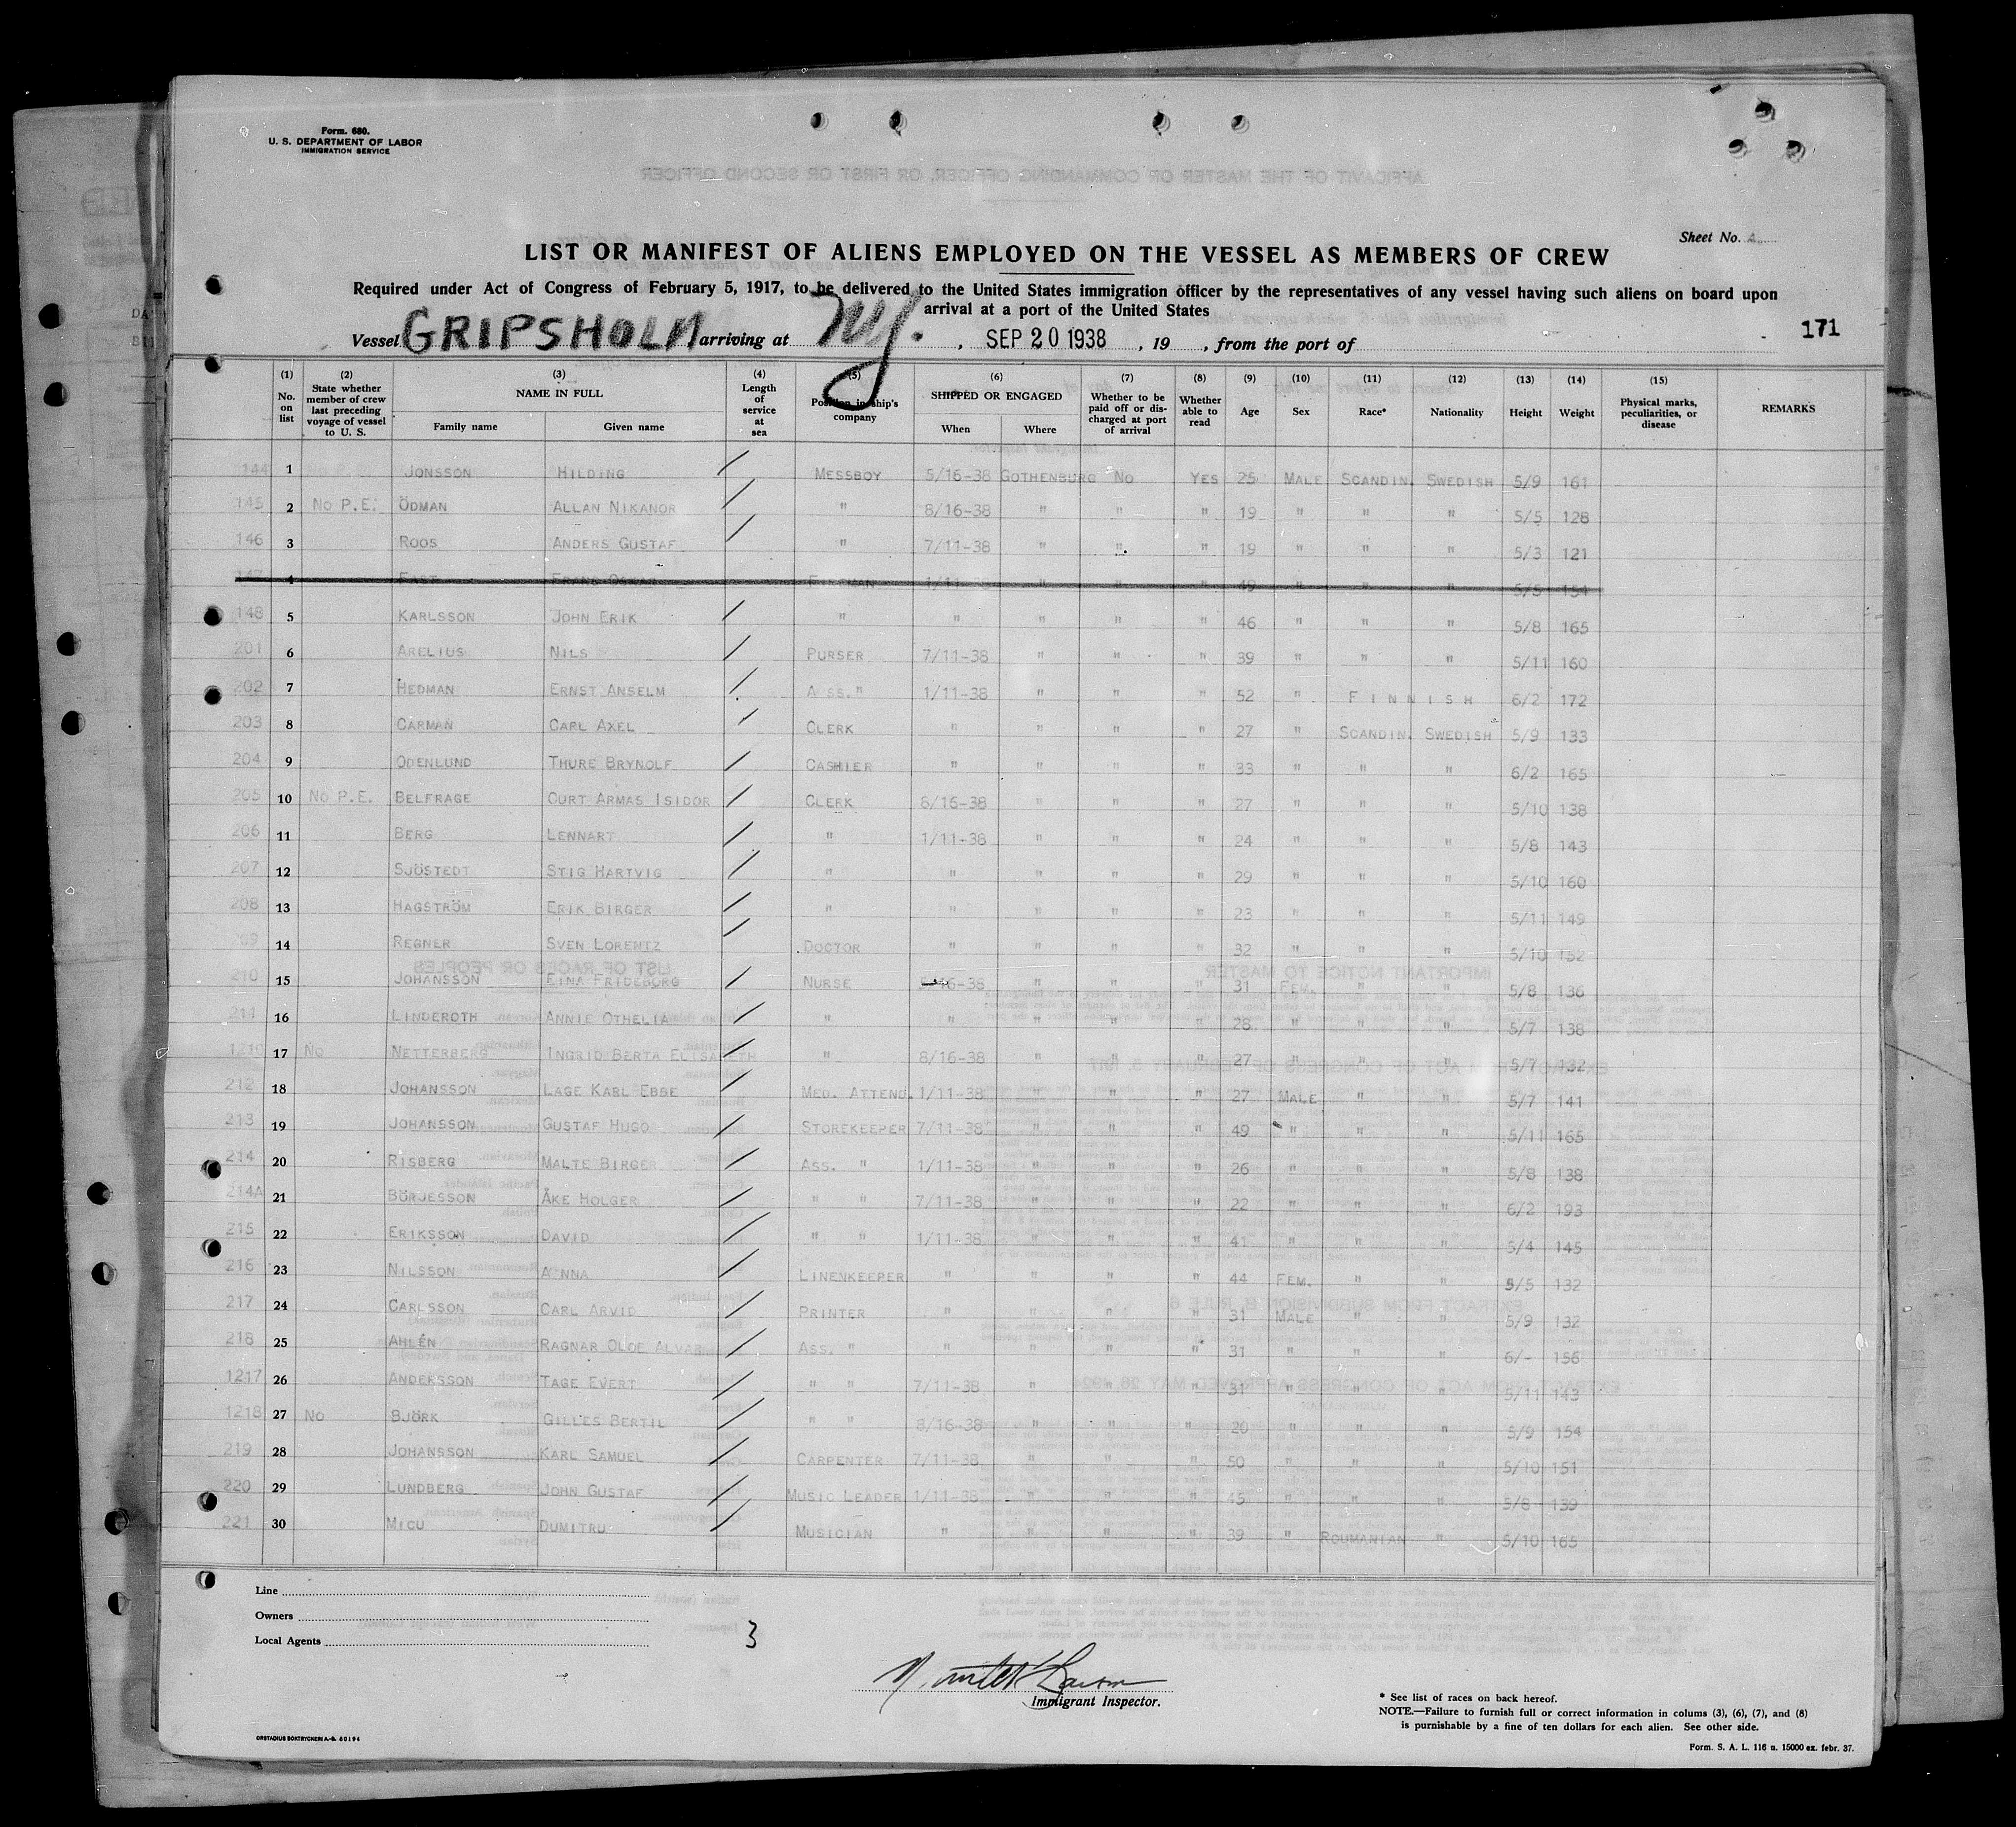 Form. 680.
U. S. DEPARTMENT OF LABOR
IMMIGRATION SERVICE
Sheet No.
LIST OR MANIFEST OF ALIENS EMPLOYED ON THE VESSEL AS MEMBERS OF CREW
Required under Act of Congress of February 5, 1917, to be delivered to the United States immigration officer by the representatives of any vessel having such aliens on board upon
arrival at a port of the United States
171
Vessel GRIPSHOLM arriving at N.Y. , SEP 20 1938 , 19 , from the port of
(1) (2) (3) (4) (5) (6) (7) (8) (9) (10) (11) (12) (13) (14) (15)
No. on list State whether member of crew last preceding voyage of vessel to U. S. NAME IN FULL Family name Given name Length of service at sea Position in ship's company SHIPPED OR ENGAGED When Where Whether to be paid off or discharged at port of arrival Whether able to read Age Sex Race* Nationality Height Weight Physical marks, peculiarities, or disease REMARKS
144 1 No P.E. JONSSON HILDING MESSBOY 5/16-38 GOTHENBURG NO YES 25 MALE SCANDIN. SWEDISH 5/9 161
145 2 No P.E. ÖDMAN ALLAN NIKANOR " 8/16-38 " " " 19 " " " 5/5 128
146 3 ROOS ANDERS GUSTAF " 7/11-38 " " " 19 " " " 5/3 121
147 4 FRANS OSKAR FIREMAN 1/11-38 " " " 49 " " " 5/5 154
148 5 KARLSSON JOHN ERIK " " " " " 46 " " " 5/8 165
201 6 ARELIUS NILS PURSER 7/11-38 " " " 39 " " " 5/11 160
202 7 HEDMAN ERNST ANSELM ASS. " 1/11-38 " " " 52 " FINNISH 6/2 172
203 8 CARMAN CARL AXEL CLERK " " " " 27 " SCANDIN. SWEDISH 5/9 133
204 9 ODENLUND THURE BRYNOLF CASHIER " " " " 33 " " " 6/2 165
205 10 No P.E. BELFRAGE CURT ARMAS ISIDOR CLERK 8/16-38 " " " 27 " " " 5/10 138
206 11 BERG LENNART " 1/11-38 " " " 24 " " " 5/8 143
207 12 SJÖSTEDT STIG HARTVIG " " " " " 29 " " " 5/10 160
208 13 HAGSTRÖM ERIK BIRGER " " " " " 23 " " " 5/11 149
209 14 REGNER SVEN LORENTZ DOCTOR " " " " 32 " " " 5/10 152
210 15 JOHANSSON EINA FRIDEBORG NURSE 5/16-38 " " " 31 FEM. " " 5/8 136
211 16 LINDEROTH ANNIE OTHELIA " " " " " 28 " " " 5/7 138
1219 17 No NETTERBERG INGRID BERTA ELISABETH " 8/16-38 " " " 27 " " " 5/7 132
212 18 JOHANSSON LAGE KARL EBBE MED. ATTEND. 1/11-38 " " " 27 MALE " " 5/7 141
213 19 JOHANSSON GUSTAF HUGO STOREKEEPER 7/11-38 " " " 49 " " " 5/11 165
214 20 RISBERG MALTE BIRGER ASS. " 1/11-38 " " " 26 " " " 5/8 138
214A 21 BÖRJESSON ÅKE HOLGER " " 7/11-38 " " " 22 " " " 6/2 193
215 22 ERIKSSON DAVID " " 1/11-38 " " " 41 " " " 5/4 145
216 23 NILSSON ANNA LINENKEEPER " " " " 44 FEM. " " 5/5 132
217 24 CARLSSON CARL ARVID PRINTER " " " " 31 MALE " " 5/9 132
218 25 AHLÉN RAGNAR OLOF ALVAR ASS. " " " " " 31 " " " 6/- 156
1217 26 ANDERSSON TAGE EVERT " " 7/11-38 " " " 31 " " " 5/11 143
1218 27 No BJÖRK GILLES BERTIL " " 8/16-38 " " " 20 " " " 5/9 154
219 28 JOHANSSON KARL SAMUEL CARPENTER 7/11-38 " " " 50 " " " 5/10 151
220 29 LUNDBERG JOHN GUSTAF MUSIC LEADER 1/11-38 " " " 45 " " " 5/8 139
221 30 MICU DUMITRU MUSICIAN " " " " 39 " ROUMANIAN " 5/10 165
Line
Owners
Local Agents
3
Immigrant Inspector.
* See list of races on back hereof.
NOTE.—Failure to furnish full or correct information in colums (3), (6), (7), and (8)
is punishable by a fine of ten dollars for each alien. See other side.
ORSTADIUS BOKTRYCKERI A.-B. 60194
Form. S. A. L. 116 n. 15000 ex. febr. 37.